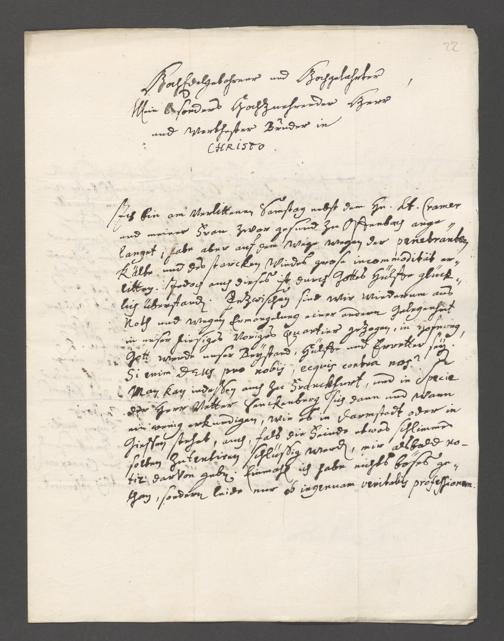 22
HochEdelgebohrner und Hochgelahrter
Mein besonders Hochzuehrender Herr
und Werthester Bruder in
CHRISTO.
Ich bin am verlittenen Samstag nebst dem Hn. Lt. Cramer
und meiner Frau zwar gesund zu Offenbach ange-
langet, habe aber auf dem Wege wegen der penetranten
Kälte und des starcken Windes grose incommodität er-
litten. Jedoch auch dieses ist durch Gottes Hülffe glück-
lich überstanden. Inzwischen sind wir wiederum aus
Noth und wegen Ermangelung einer andern Gelegenheit
in unser hiesiges voriges Quartier gezogen, in Hofnung
Gott werde unser Beystand, Hülffe und Erretter seyn.
Si enim DEUS pro nobis, ecquis contra nos?
Man kan indessen auch zu Franckfurt, und in specie
der Herr Vetter Senckenberg sich dann und wann
ein wenig erkundigen, wie es in Darmstadt oder in
Giessen stehet, auch, falls die Feinde etwas schlimmes
solten schlüssig werden, mir alsbald no-
tiz davon geben. Einmahl ich habe nichts böses ge-
than, sondern leide nur ob ingenuam veritatis professionem.